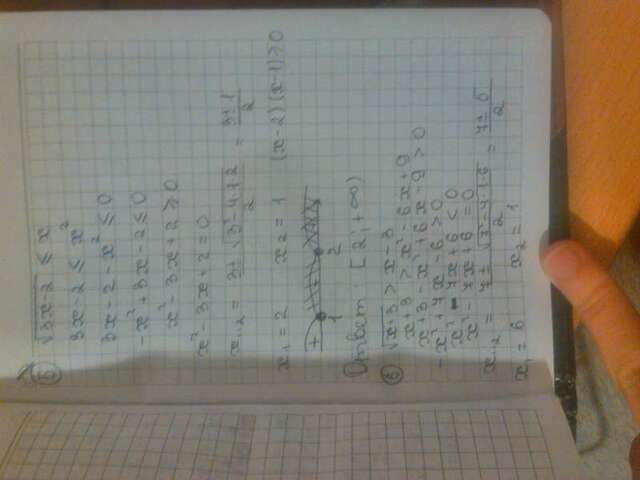 5) √(3x-2) ≤ x
3x-2 ≤ x²
3x-2-x² ≤ 0
-x²+3x-2 ≤ 0
x²-3x+2 ≥ 0
x²-3x+2=0
x₁,₂ = (3±√(3²-4·1·2))/2 = (3±1)/2
x₁=2 x₂=1 (x-2)(x-1)≥0
+ 1 2
Ответ: [2; +∞)
6) √(x+3) > x-3
x+3 > x²-6x+9
x+3-x²+6x-9 > 0
-x²+7x-6>0
x²-7x+6<0
x²-7x+6=0
x₁,₂ = (7±√(7²-4·1·6))/2 = (7±5)/2
x₁=6 x₂=1